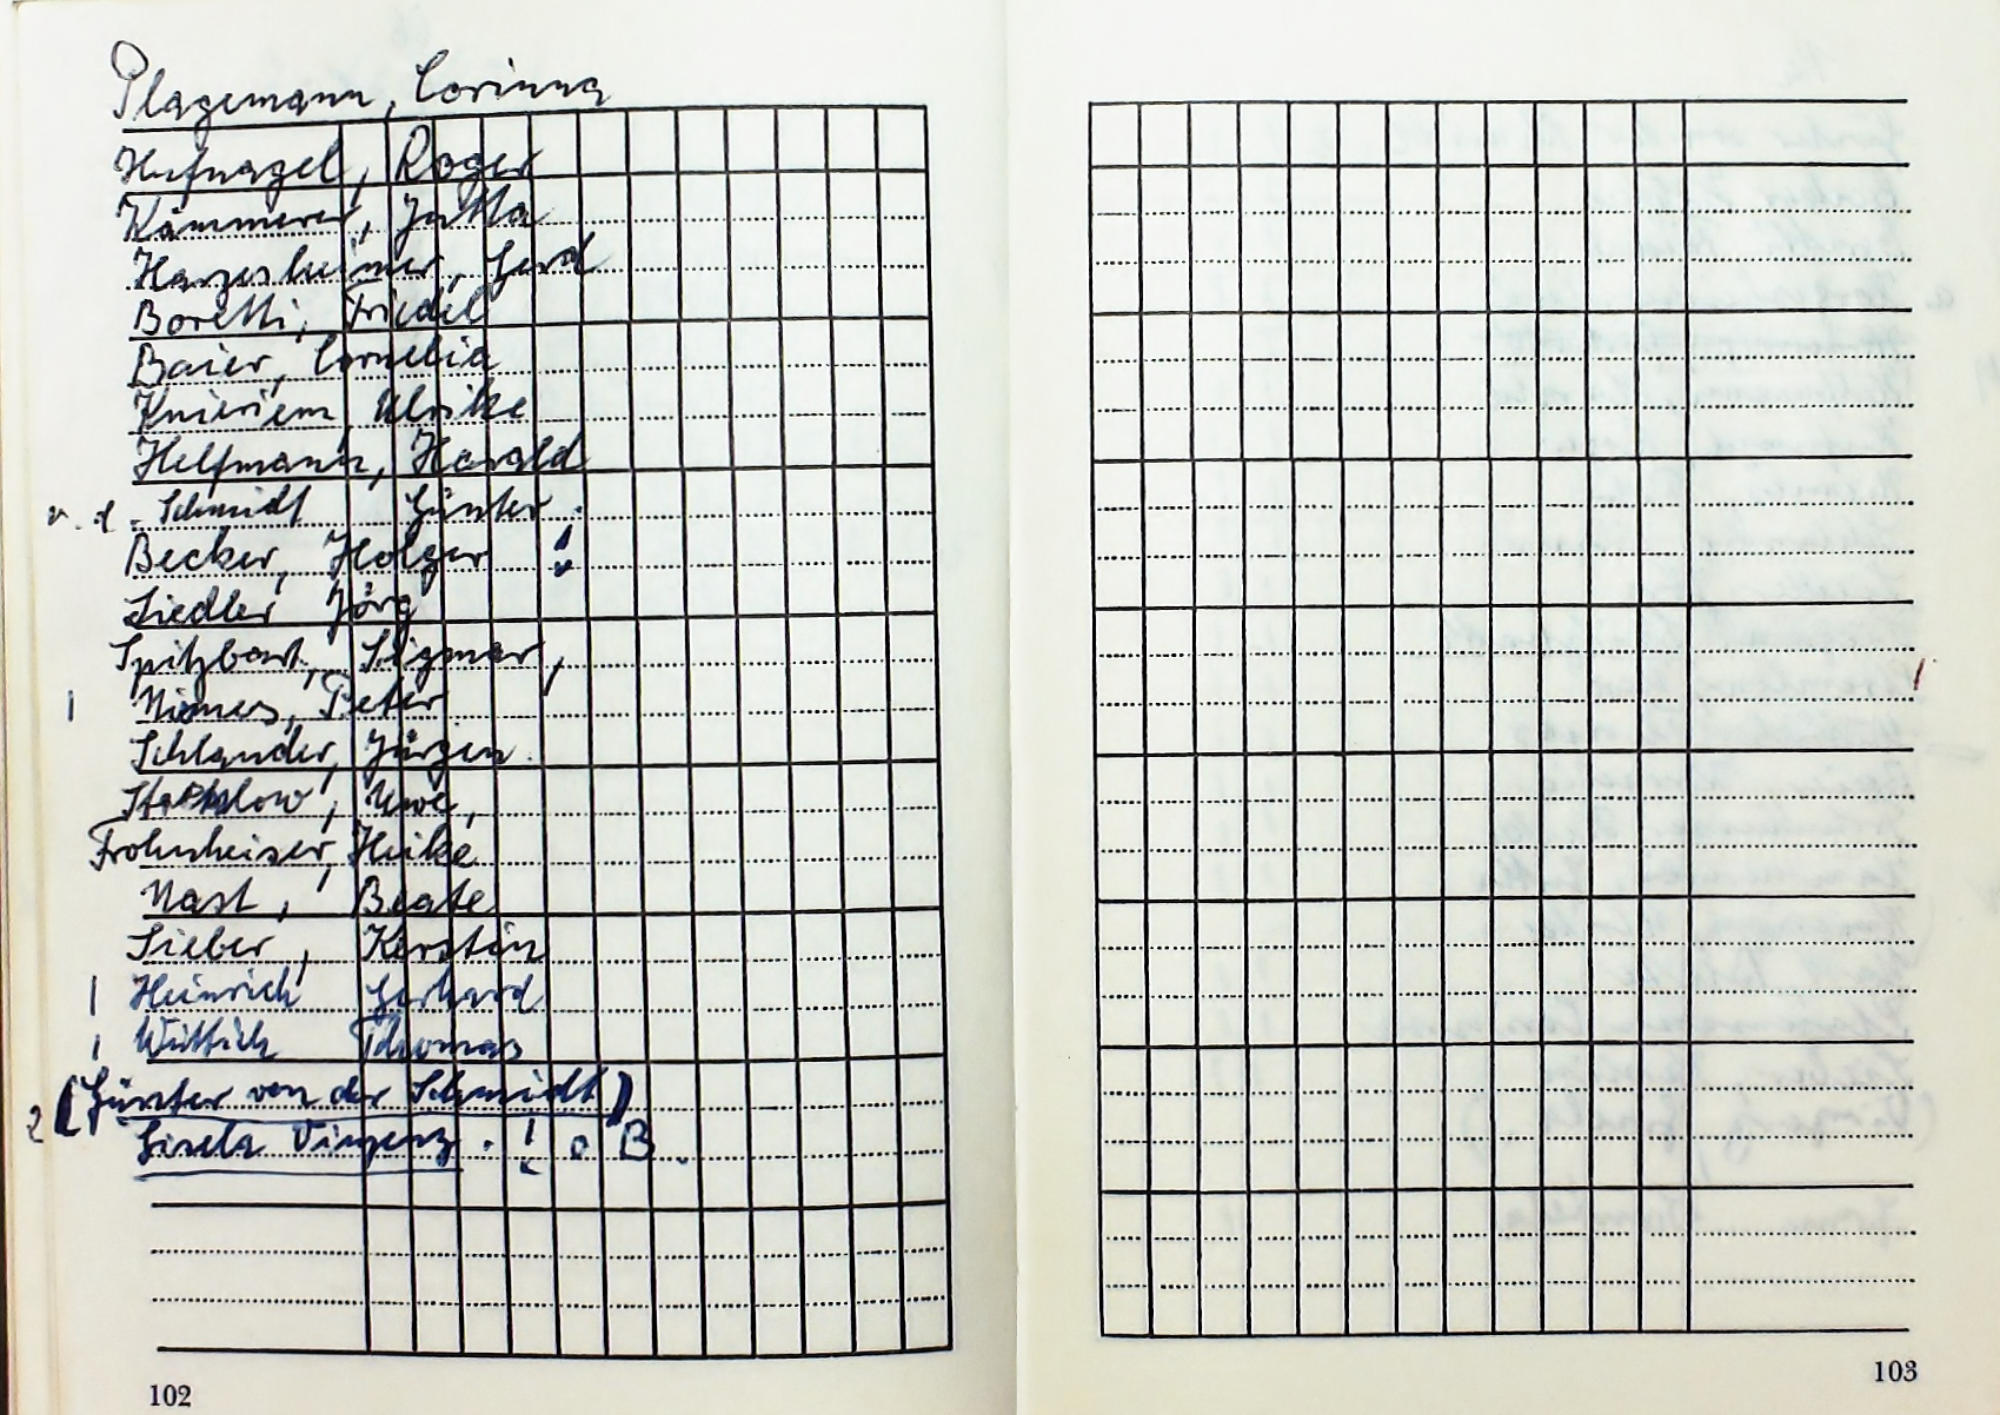 Plagemann, Corinna
Hufnagel, Roger
Kämmerer, Jutta
Harzesheimer, Gerd
Boretti, Friedel
Baier, Cornelia
Knieriem, Ulrike
Helfmann, Harald
v. d. Schmidt Günter.
Becker, Holger !
Siedler Jörg
Spitzbart, Sigmar,
1 Niemes, Peter
Schlander, Jürgen.
Uwe,
Frohnheiser, Heike
Nast, Beate
Sieber, Kerstin
1 Heinrich Gerhard
1 Wittich Thomas
(Günter von der Schmidt)
2 Gisela Vinzenz . ! o B.
102
103